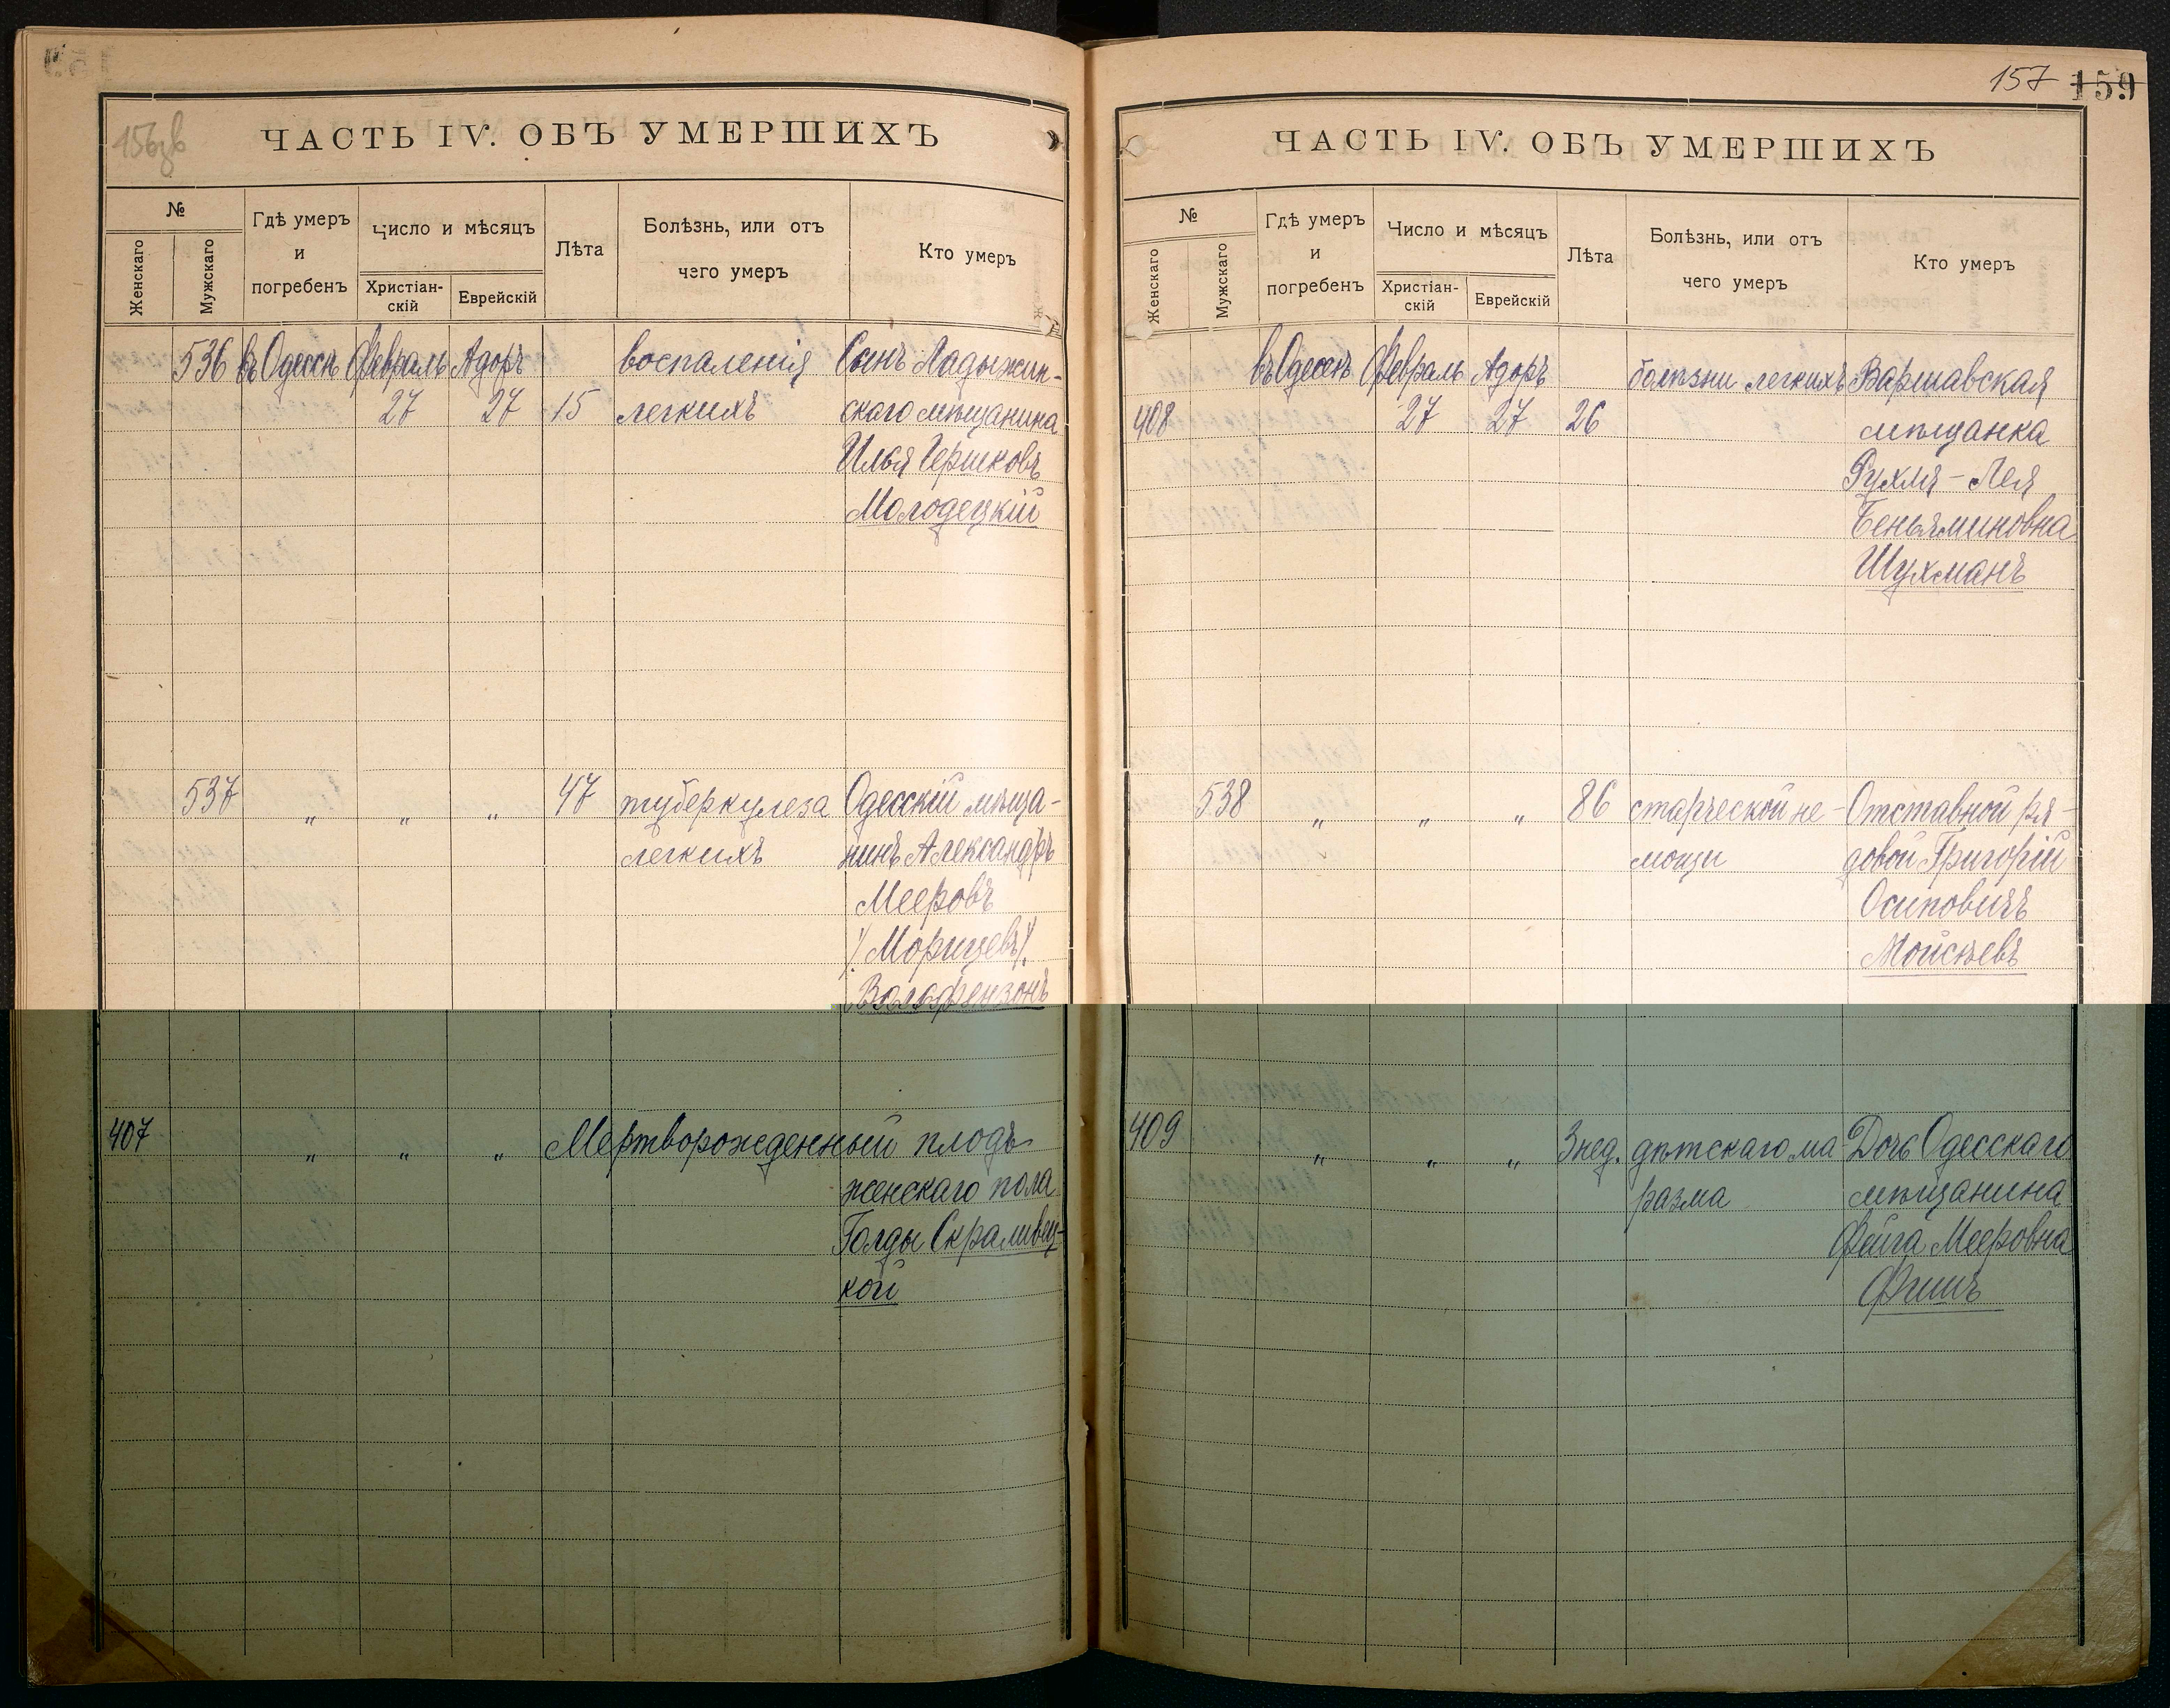 156зв
ЧАСТЬ IV. ОБЪ УМЕРШИХЪ
№
Женскаго
Мужскаго
Гдѣ умеръ
и
погребенъ
Число и мѣсяцъ
Христіан-
скій
Еврейскій
Лѣта
Болѣзнь, или отъ
чего умеръ
Кто умеръ
536 въ Одессѣ Февраль Адоръ воспаленія Сынъ Ладыжин-
27 27 15 легкихъ скаго мѣщанина
Илья Гершковъ
Молодецкій
537 " " " 47 туберкулеза Одесскій мѣща-
легкихъ нинъ Александръ
Мееровъ
/Морицевъ/
Вольфензонъ
407 " " " Мертворожденный плодъ
женскаго пола
Голды Скраливец-
кой
157 159
ЧАСТЬ IV. ОБЪ УМЕРШИХЪ
№
Женскаго
Мужскаго
Гдѣ умеръ
и
погребенъ
Число и мѣсяцъ
Христіан-
скій
Еврейскій
Лѣта
Болѣзнь, или отъ
чего умеръ
Кто умеръ
въ Одессѣ Февраль Адоръ болѣзни легкихъ Варшавская
408 27 27 26 мѣщанка
Рухля-Лея
Беньяминовна
Шухманъ
538 " " " 86 старческой не- Отставной ря-
мощи довой Григорій
Осиповичъ
Мойсѣевъ
409 " " " 3 нед. дѣтскаго ма Дочь Одесскаго
разма мѣщанина
Фейга Мееровна
Фишъ